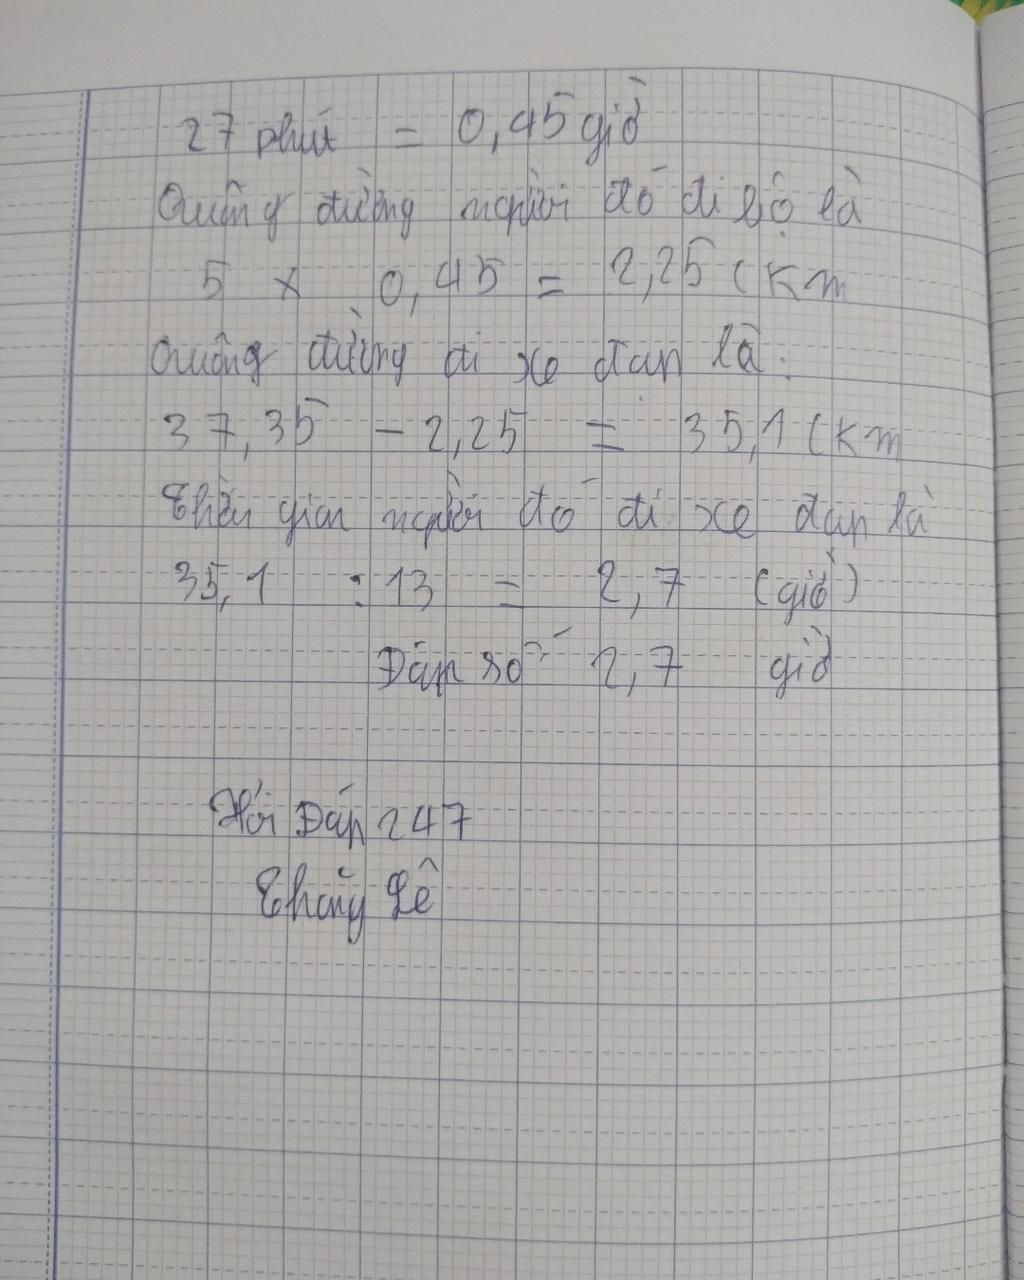 27 phút = 0,45 giờ
Quãng đường người đó đi bộ là
5 x 0,45 = 2,25 (Km
Quãng đường đi xe đạp là:
37,35 - 2,25 = 35,1 (Km
Thời gian người đó đi xe đạp là
35,1 : 13 = 2,7 (giờ)
Đáp số: 2,7 giờ
Hỏi Đáp 247
Thắng Lê